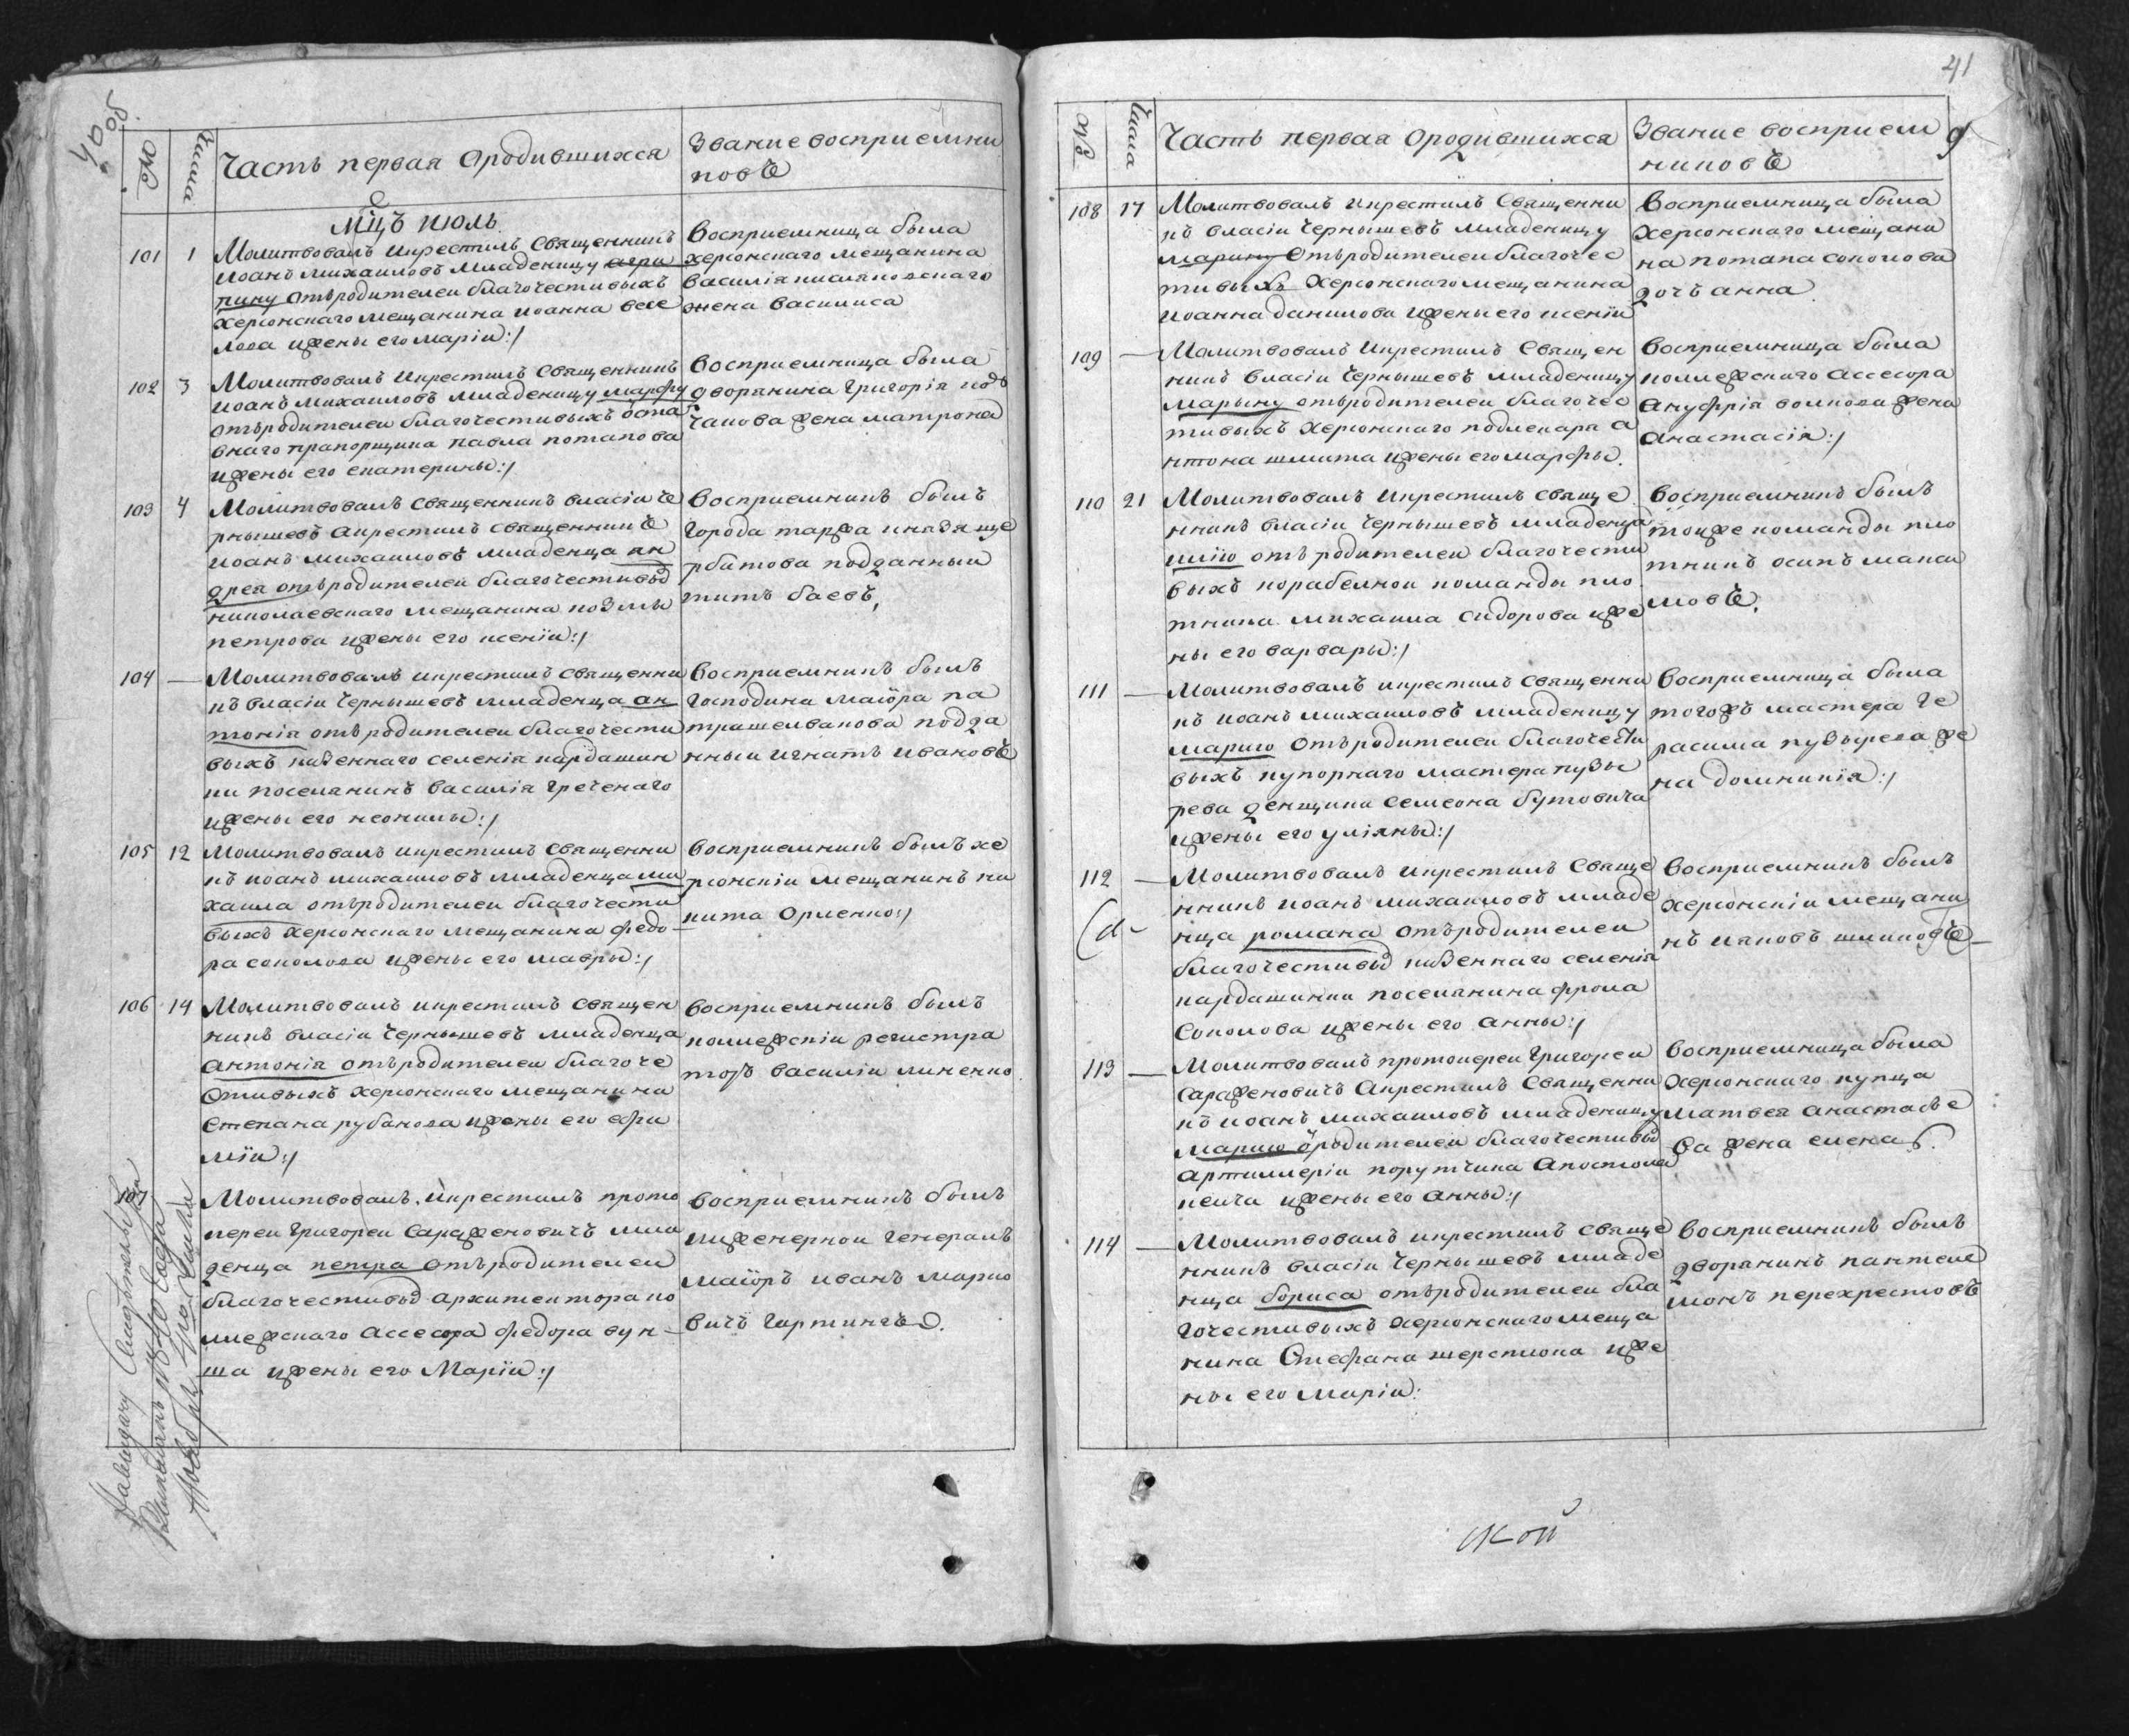 40 об.
№
Числа
Часть первая О родившихся
Звание восприемни
ковъ
Мцъ июль
101
1
Молитвовалъ и крестилъ Священникъ
иоанъ михаиловъ младеницу агри
пину отъ родителеи благочестивыхъ
херсонскаго мещанина иоанна
лова и жены его маріи:/
Восприемница была
херсонскаго мещанина
василія
жена василиса
102
3
Молитвовалъ и крестилъ Священникъ
иоанъ михаиловъ младеницу марфу
отъ родителеи благочестивыхъ ѿста
внаго прапорщика павла потапова
и жены его екатерины:/
Восприемница была
дворянина григорія кол
чакова жена матрона
103
4
Молитвовалъ Священникъ власіи че
рнышевъ а крестилъ Священникъ
иоанъ михаиловъ младенца ан
дрея отъ родителеи благочестивы
николаевскаго мещанина козмы
петрова и жены его ксеніи:/
Восприемникъ былъ
города таржа князя ще
рбатова подданныи
титъ баевъ
104
—
Молитвовалъ и крестилъ Священни
къ власіи Чернышевъ младенца ан
тонія отъ родителеи благочести
выхъ казеннаго селенія кардашин
ки поселянинъ василія гречекаго
и жены его неонилы:/
Восприемникъ былъ
Господина маіора па
подда
нныи игнатъ ивановъ
105
12
Молитвовалъ и крестилъ Священни
къ иоанъ михаиловъ младенца ми
хаила отъ родителеи благочести
выхъ херсонскаго мещанина федо
ра соколова и жены его мавры:/
Восприемникъ былъ хе
рсонскіи мещанинъ ни
кита Орленко:/
106
14
Молитвовалъ и крестилъ Священ
никъ власіи Чернышевъ младенца
антонія отъ родителеи благоче
стивыхъ херсонскаго мещанина
степана рубанова и жены его ефи
міи:/
Восприемникъ былъ
коллежскіи регистра
торъ василіи линенко
107
Молитвовалъ и крестилъ прото
иереи григореи сарафеновичъ мла
денца петра отъ родителеи
благочестивы архитектора ко
лежскаго ассесора федора вун
ша и жены его Маріи:/
Восприемникъ былъ
инженернои генералъ
маіоръ иванъ марко
вичъ гартингъ.
41
9
№
Числа
Часть первая О родившихся
Звание восприем
никовъ
108
17
Молитвовалъ и крестилъ Священни
къ власіи Чернышевъ младеницу
марину Отъ родителеи благочес
тивыхъ херсонскаго мещанина
иоанна данилова и жены его ксеніи
Восприемница была
херсонскаго мещани
на потапа соколова
дочъ анна
109
—
Молитвовалъ и крестилъ Священ
никъ власіи Чернышевъ младеницу
марыну отъ родителеи благочес
тивыхъ херсонскаго подлекара а
нтона шмита и жены его марфы.
Восприемница была
коллежскаго ассесора
ануфрія волкова жена
анастасія:/
110
21
Молитвовалъ и крестилъ Свяще
нникъ власіи Чернышевъ младенца
илію отъ родителеи благочести
выхъ корабелнои команды пло
тника михаила сидорова и же
ны его варвары:/
Восприемникъ былъ
тоиже команды пло
тникъ осипъ макси
мовъ.
111
—
Молитвовалъ и крестилъ Священни
къ иоанъ михаиловъ младеницу
марию отъ родителеи благочести
выхъ купорнаго мастера пузы
рева денщика семеона бутовича
и жены его уліяны:/
Восприемница была
тогожъ мастера ге
расима пузырева же
на домникія:/
112
—
Молитвовалъ и крестилъ Свяще
нникъ иоанъ михаиловъ младе
нца романа Отъ родителеи
благочестивы казеннаго селенія
кардашинки поселянина фрола
Соколова и жены его анны:/
Восприемникъ былъ
херсонскіи мещани
нъ ияковъ шликовъ
113
—
Молитвовалъ протоиереи григореи
сарафеновичъ а крестилъ Священни
къ иоанъ михаиловъ младеницу
марию ѿ родителеи благочестивы
артиллеріи порутчика апостола
кеича и жены его анны:/
Восприемница была
херсонскаго купца
матвея анастасье
ва жена елена.
114
—
Молитвовалъ и крестилъ Свяще
нникъ власіи Чернышевъ младе
нца бориса отъ родителеи бла
гочестивыхъ херсонскаго меща
нина Стефана шерстюка и же
ны его маріи:
Восприемникъ былъ
дворянинъ пантеле
монъ перехрестовъ
ской